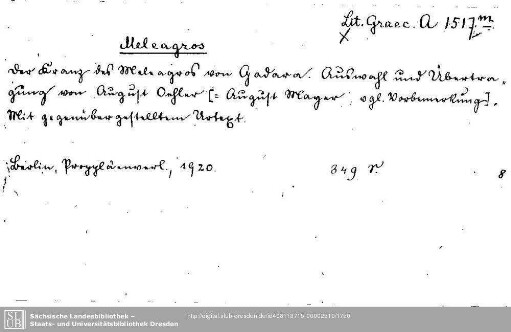 Lit. Graec. A 1517 m
Meleagros
Der Kranz des Meleagros von Gadara. Auswahl und Übertra-
gung von August Oehler [= August Mayer, vgl. Vorbemerkung].
Mit gegenübergestelltem Urtext.
Berlin, Propyläenverl., 1920. 349 S. 8
Sächsische Landesbibliothek –
Staats- und Universitätsbibliothek Dresden